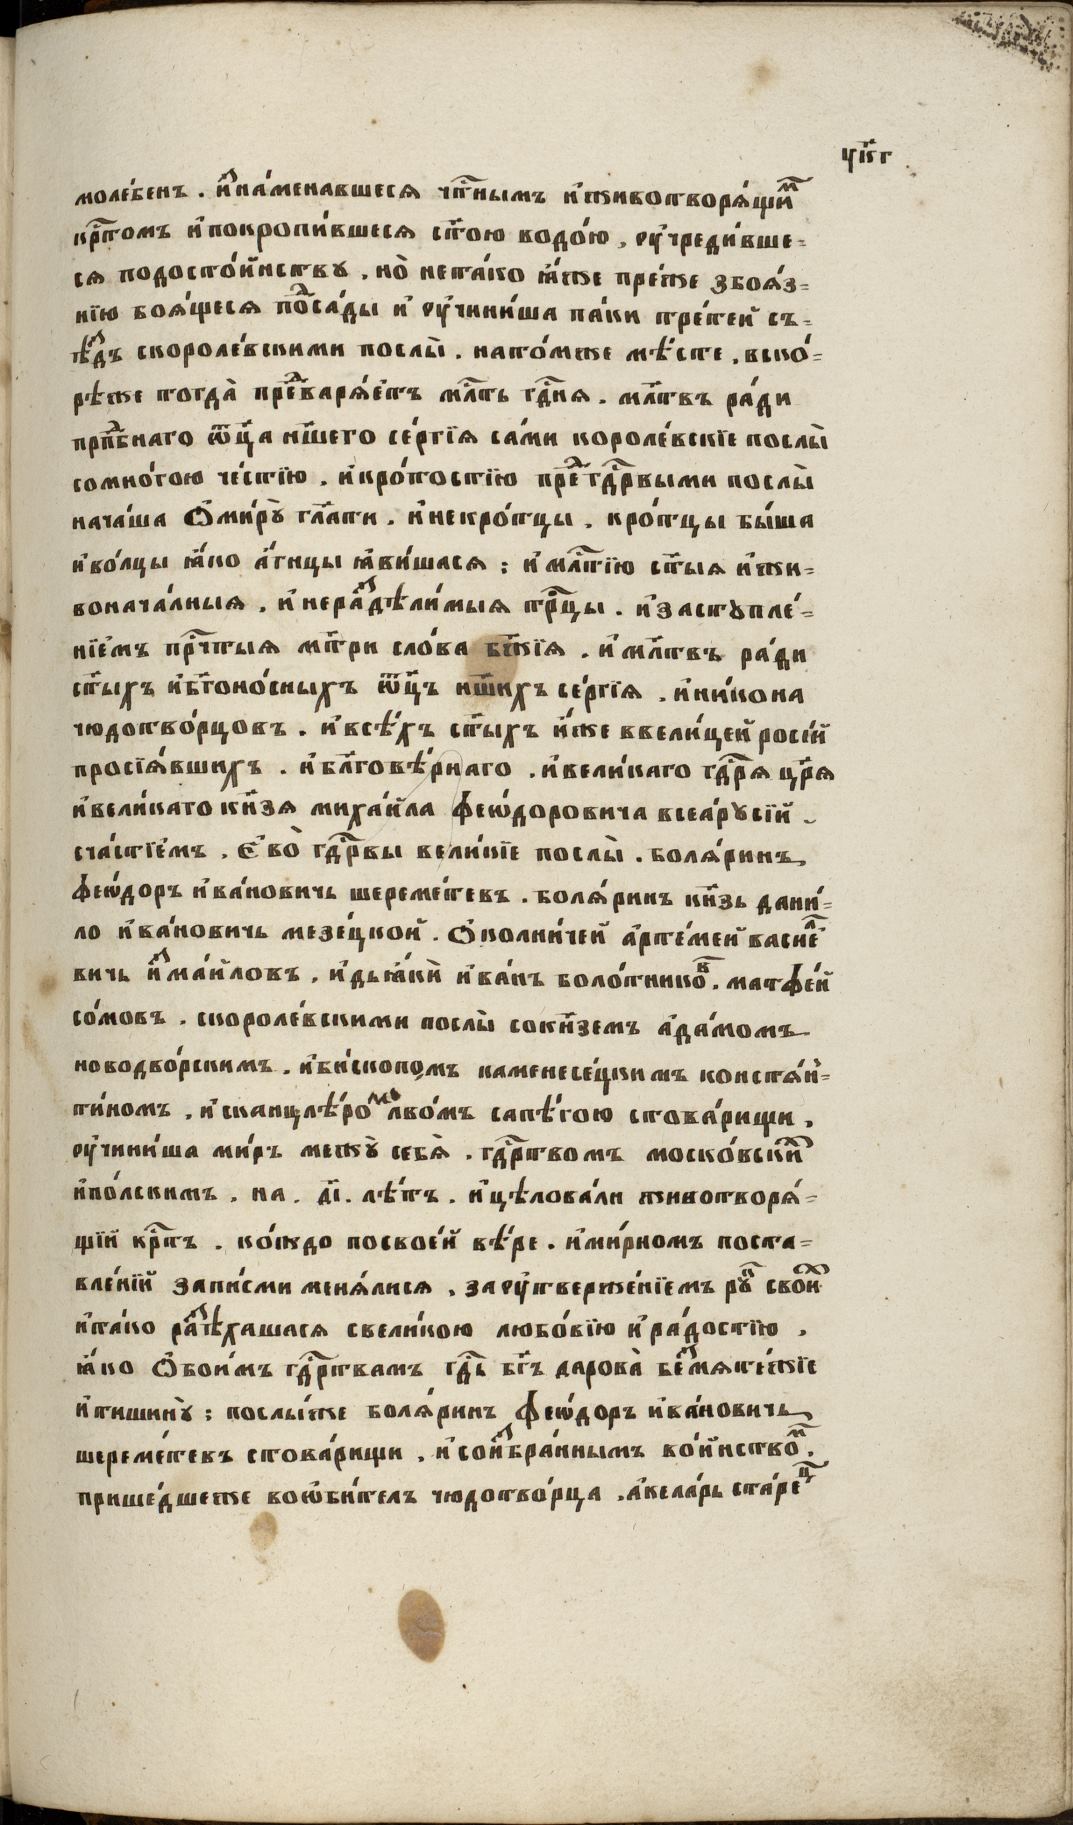 ч҃кг
моле́бенъ . и҆зна́менавшеся чⷭ҇тнымъ и҆животворѧ́щиⷨ
крⷭ҇томъ и҆покропи́вшеся ст҃ою водо́ю , ѹ҆чреди́вше=
сѧ подосто́инствꙋ , но̀ нета́ко ꙗ҆́же пре́же збоѧ́з=
нїю боѧ́щесѧ поⷭ҇са́ды и҆ ѹ҆чини́ша па́ки тре́тей съ=
ѣⷥдъ скороле́вскими послы̀ . нато́мже мѣ́сте . вско́=
рѣже тогда̀ преⷣварѧ́етъ млⷭ҇ть гдⷭ҇нѧ . мл҃твъ ра́ди
прпⷣбнаго ѿц҃а нш҃его се́ргїѧ са́ми короле́вскїе послы̀
сомно́гою че́стїю . и҆кро́тостїю преⷣгдⷭ҇рвыми послы̀
нача́ша ѡ҆ми́рꙋ̀ гл҃ати . и҆некро́тцы . кро́тцы бы́ша
и҆во́лцы ꙗ҆́ко а҆́гнцы ꙗ҆ви́шасѧ ; и҆ млⷭ҇тїю ст҃ыѧ и҆жи=
вонача́лныѧ . и҆нераⷥдѣли́мыѧ трⷪ҇цы . и҆застꙋпле́=
нїемъ прⷱ҇тыѧ мт҃ри сло́ва бж҃їѧ . и҆ мл҃твъ ра́ди
ст҃ыхъ и҆бг҃оно́сныхъ ѿц҃ъ нш҃ихъ се́ргїѧ . и҆ни́кона
чюдотво́рцовъ . и҆всѣ́хъ ст҃ыхъ и҆́же ввели́цей росі́й
просїѧ́вшихъ . и҆бл҃говѣ́рнаго . и҆вели́каго гдⷭ҇рѧ цр҃ѧ
и҆вели́каго кн҃зѧ миха́йла феѡ́доровича всеа́рꙋсїй
сча́стїемъ . є҆во̀ гдⷭ҇рвы вели́кїе послы̀ . болѧ́ринъ
феѡ́доръ и҆ва́новичь шереме́тевъ . болѧ́ринъ кн҃зь дани́=
ло и҆ва́новичь мезе́цкой . ѻ҆колничей а҆рте́мей васиⷧе҇
вичь и҆ⷥма́йловъ . и҆дьꙗ́кѝ и҆ва́нъ боло́тникоⷡ . матфе́й
со́мовъ . скороле́вскими послы̀ сокн҃земъ а҆да́момъ
новодво́рскимъ . и҆би́скопомъ каменесе́цкимъ констѧ́н=
тином​ъ , и҆сканцлѣ́роⷨ лво́мъ сапѣ́гою стова́рищи ,
ѹ҆чини́ша ми́ръ межꙋ̀ себѧ̀ . гдⷭ҇рствомъ моско́вскиⷨ
и҆по́лскимъ . на . д҃і . лѣ́тъ . и҆цѣлова́ли животворѧ́=
щїй крⷭ҇тъ . ко́ждо посвое́й вѣ́ре . и҆ми́рномъ поста=
вле́нїй запи́сми менѧ́лисѧ , заѹ҆тверже́нїемъ рꙋⷦ҇ своиⷯ
и҆та́ко раⷥѣ́хашасѧ свели́кою любо́вїю и҆ра́достїю ,
ꙗ҆́ко ѻ҆бои́мъ гдⷭ҇рствамъ гдⷭ҇ь бг҃ъ дарова̀ беⷥмѧте́жїе
и҆тишинꙋ̀ ; послы́же болѧ́ринъ феѡ́доръ и҆ва́новичь
шереме́тевъ стова́рищи , и҆соиⷥбра́ннымъ во́инствоⷨ .
прише́дшеже воѡ҆би́тель чюдотво́рца . а҆кела́рь ста́реⷰ